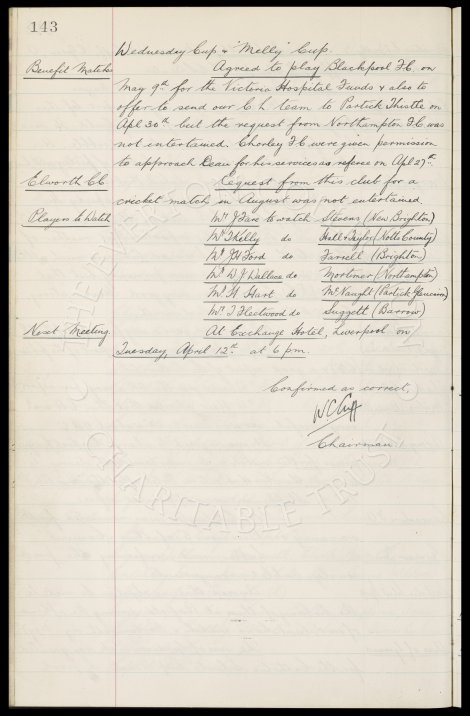 143
Wednesday Cup & "Melly" Cup.
Benefit Matches Agreed to play Blackpool F.C. on
May 9th for the Victoria Hospital Funds & also to
offer to send our C.L. team to Partick Thistle on
Apl 30th but the request from Northampton F.C. was
not entertained. Chorley F.C. were given permission
to approach Dean for his services as referee on Apl 27th.
Elworth C.C. Request from this club for a
cricket match in August was not entertained.
Players to Watch Mr J Fare to watch Stevens (New Brighton)
Mr T Kelly do Hall & Taylor (Notts County)
Mr J H Ford do Farrell (Brighton)
Mr D J Wallace do Mortimer (Northampton)
Mr H Hart do McNaught (Partick Glencairn)
Mr T Fleetwood do Suggett (Barrow)
Next Meeting. At Exchange Hotel, Liverpool on
Tuesday April 12th at 6 pm.
Confirmed as correct,
W C Cuff
Chairman.
THE EVERTON
CHARITABLE TRUST